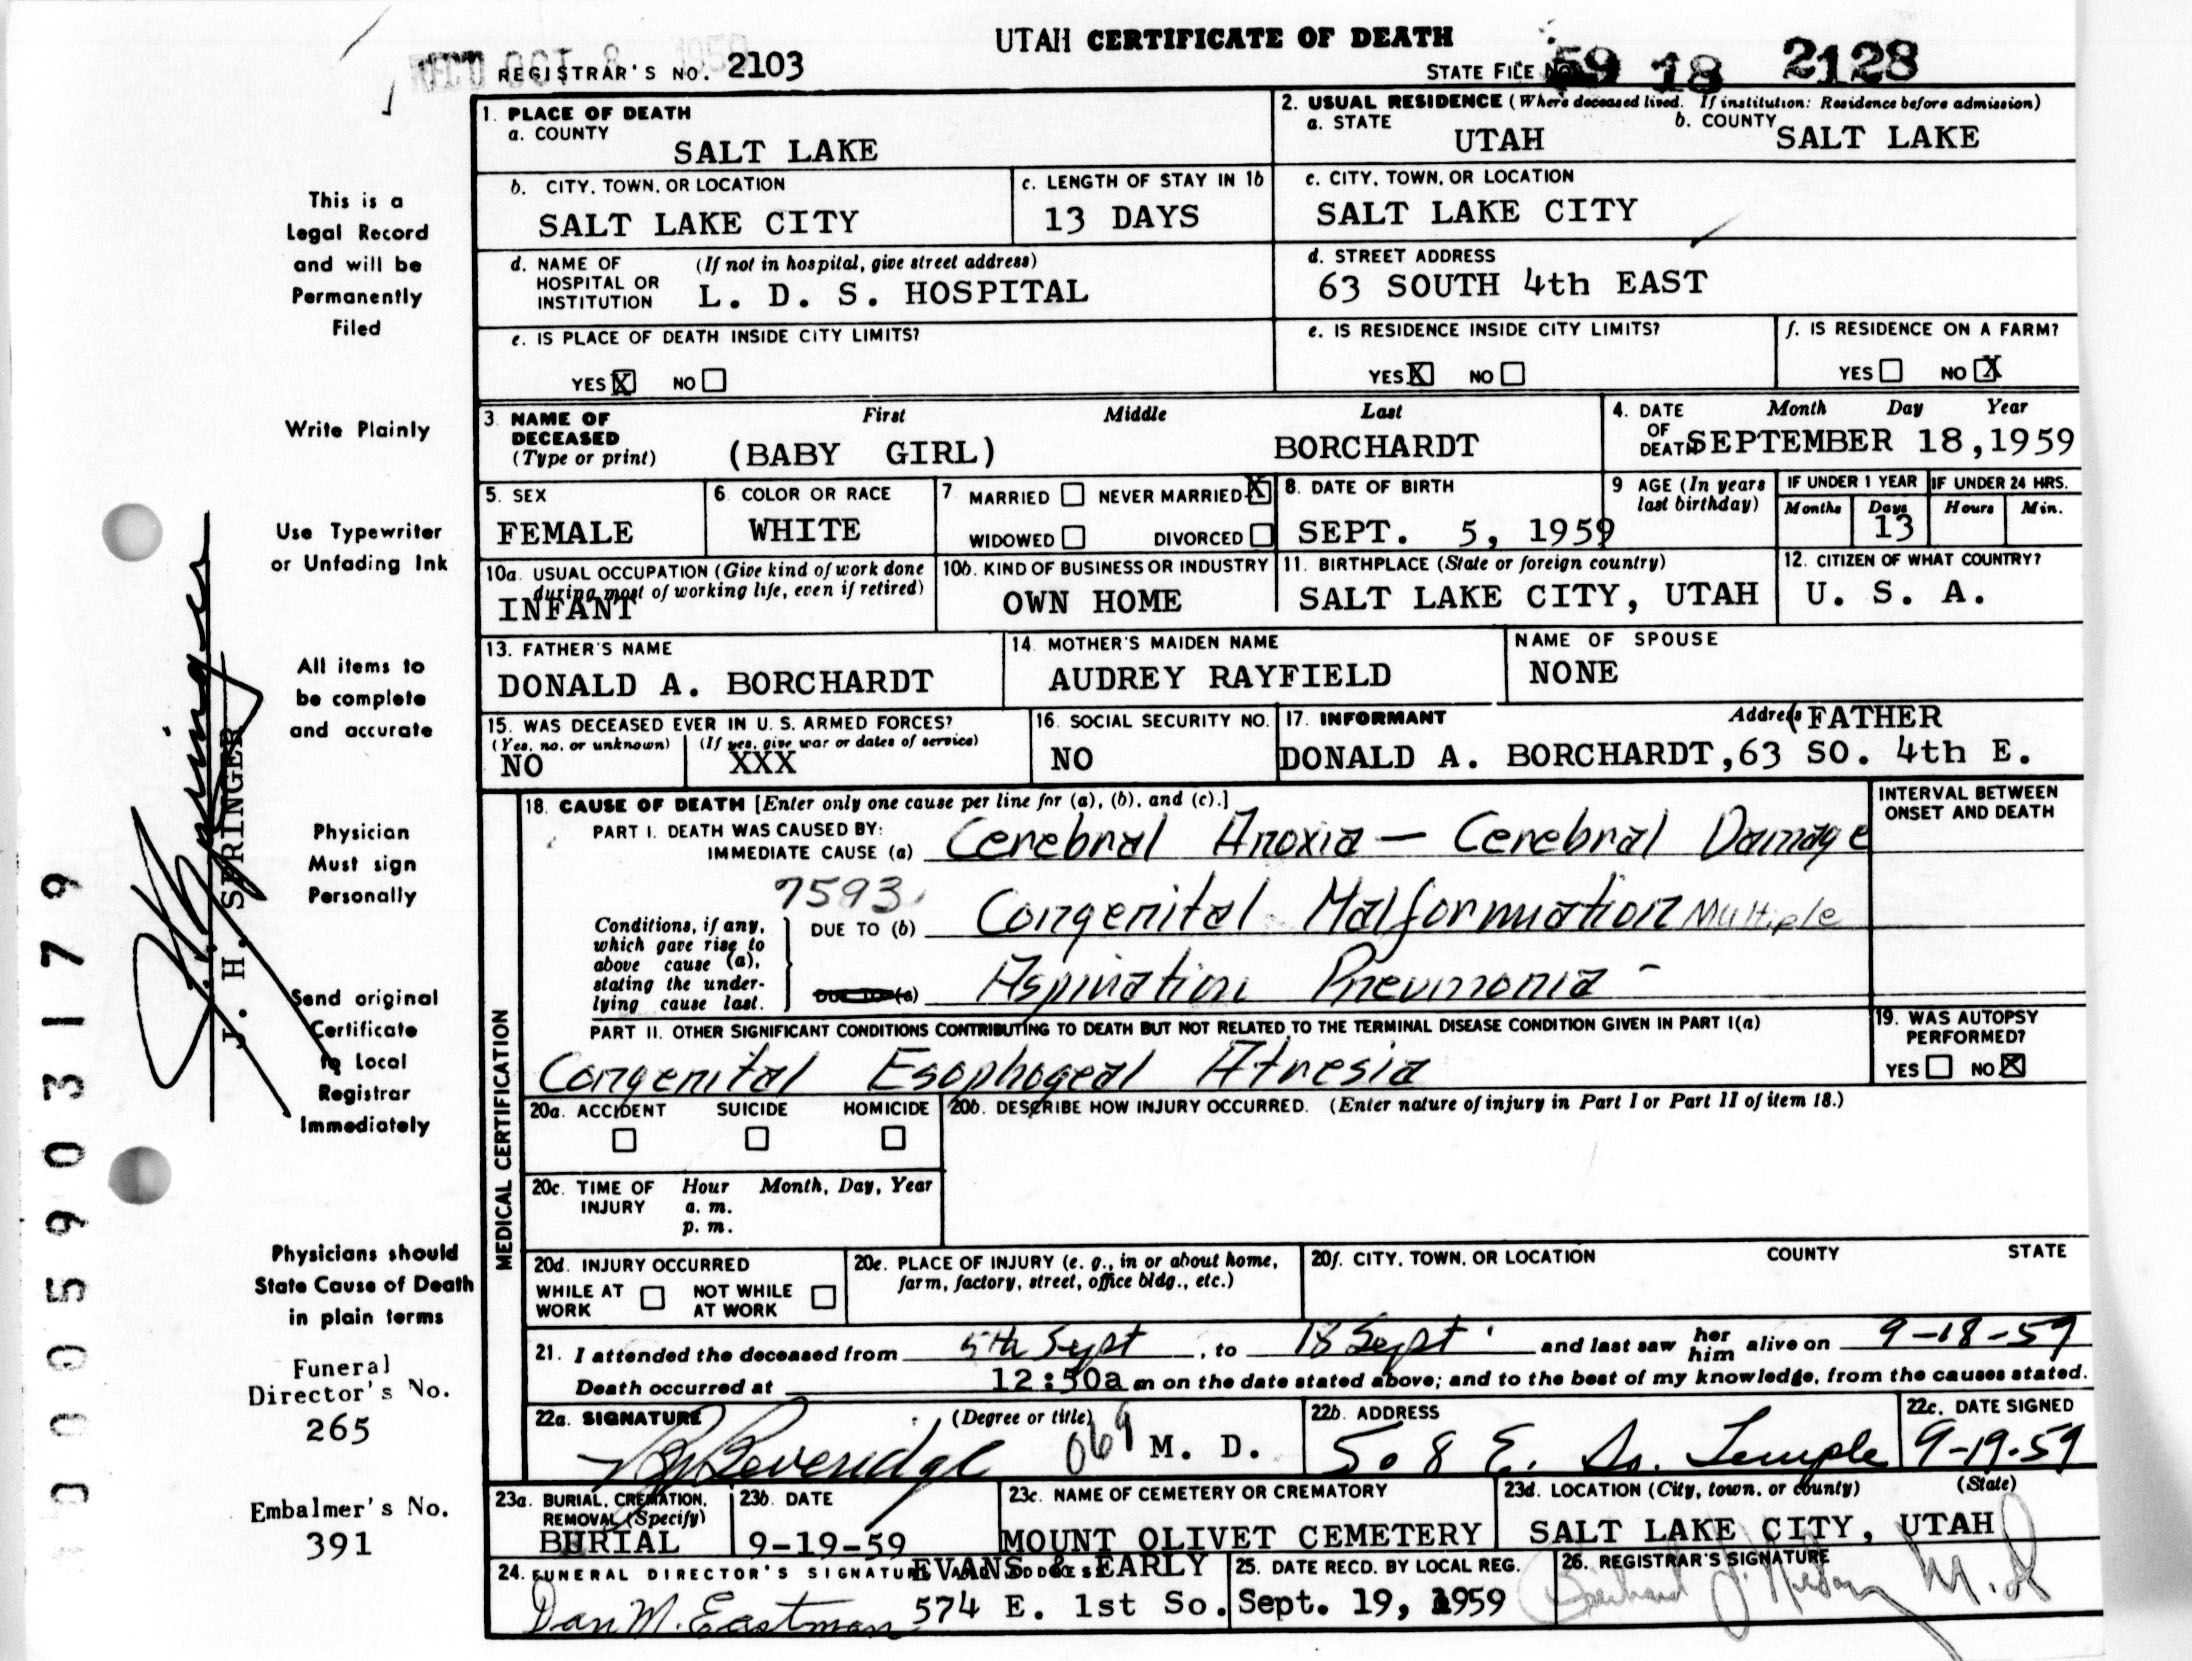 UTAH CERTIFICATE OF DEATH
REC'D OCT 8 1959
REGISTRAR'S NO. 2103
STATE FILE No 59 18 2128
1. PLACE OF DEATH
a. COUNTY
SALT LAKE
2. USUAL RESIDENCE (Where deceased lived. If institution: Residence before admission)
a. STATE
UTAH
b. COUNTY
SALT LAKE
b. CITY, TOWN, OR LOCATION
SALT LAKE CITY
c. LENGTH OF STAY IN 1b
13 DAYS
c. CITY, TOWN, OR LOCATION
SALT LAKE CITY
d. NAME OF (If not in hospital, give street address)
HOSPITAL OR
INSTITUTION
L. D. S. HOSPITAL
d. STREET ADDRESS
63 SOUTH 4th EAST
e. IS PLACE OF DEATH INSIDE CITY LIMITS?
YES X NO
e. IS RESIDENCE INSIDE CITY LIMITS?
YES X NO
f. IS RESIDENCE ON A FARM?
YES NO X
3. NAME OF DECEASED
(Type or print)
First Middle Last
(BABY GIRL) BORCHARDT
4. DATE OF DEATH
Month Day Year
SEPTEMBER 18,1959
5. SEX
FEMALE
6. COLOR OR RACE
WHITE
7 MARRIED NEVER MARRIED X
WIDOWED DIVORCED
8. DATE OF BIRTH
SEPT. 5, 1959
9 AGE (In years last birthday)
IF UNDER 1 YEAR
Months Days
13
IF UNDER 24 HRS.
Hours Min.
10a. USUAL OCCUPATION (Give kind of work done during most of working life, even if retired)
INFANT
10b. KIND OF BUSINESS OR INDUSTRY
OWN HOME
11. BIRTHPLACE (State or foreign country)
SALT LAKE CITY, UTAH
12. CITIZEN OF WHAT COUNTRY?
U. S. A.
13. FATHER'S NAME
DONALD A. BORCHARDT
14. MOTHER'S MAIDEN NAME
AUDREY RAYFIELD
NAME OF SPOUSE
NONE
15. WAS DECEASED EVER IN U. S. ARMED FORCES?
(Yes, no, or unknown) (If yes, give war or dates of service)
NO XXX
16. SOCIAL SECURITY NO.
NO
17. INFORMANT Address (FATHER
DONALD A. BORCHARDT,63 SO. 4th E.
MEDICAL CERTIFICATION
18. CAUSE OF DEATH [Enter only one cause per line for (a), (b), and (c).]
INTERVAL BETWEEN
ONSET AND DEATH
PART I. DEATH WAS CAUSED BY:
IMMEDIATE CAUSE (a) Cerebral Anoxia — Cerebral Damage
7593
Conditions, if any, which gave rise to above cause (a), stating the underlying cause last.
DUE TO (b) Congenital Malformation Multiple
DUE TO (c) Aspiration Pneumonia -
PART II. OTHER SIGNIFICANT CONDITIONS CONTRIBUTING TO DEATH BUT NOT RELATED TO THE TERMINAL DISEASE CONDITION GIVEN IN PART I(a)
Congenital Esophogeal Atresia
19. WAS AUTOPSY
PERFORMED?
YES NO X
20a. ACCIDENT SUICIDE HOMICIDE
20b. DESCRIBE HOW INJURY OCCURRED. (Enter nature of injury in Part I or Part II of item 18.)
20c. TIME OF INJURY Hour Month, Day, Year
a. m.
p. m.
20d. INJURY OCCURRED
WHILE AT WORK NOT WHILE AT WORK
20e. PLACE OF INJURY (e. g., in or about home, farm, factory, street, office bldg., etc.)
20f. CITY, TOWN, OR LOCATION COUNTY STATE
21. I attended the deceased from 5th Sept, to 18 Sept and last saw her him alive on 9-18-59
Death occurred at 12:50a m on the date stated above; and to the best of my knowledge, from the causes stated.
22a. SIGNATURE (Degree or title)
Beveridge 069 M. D.
22b. ADDRESS
508 E. So. Temple
22c. DATE SIGNED
9-19-59
23a. BURIAL, CREMATION, REMOVAL (Specify)
BURIAL
23b. DATE
9-19-59
23c. NAME OF CEMETERY OR CREMATORY
MOUNT OLIVET CEMETERY
23d. LOCATION (City, town, or county) (State)
SALT LAKE CITY, UTAH
24. FUNERAL DIRECTOR'S SIGNATURE AND ADDRESS
EVANS & EARLY
Dan M. Eastman 574 E. 1st So.
25. DATE RECD. BY LOCAL REG.
Sept. 19, 1959
26. REGISTRAR'S SIGNATURE
M.D
This is a
Legal Record
and will be
Permanently
Filed
Write Plainly
Use Typewriter
or Unfading Ink
All items to
be complete
and accurate
Physician
Must sign
Personally
Send original
Certificate
to Local
Registrar
Immediately
Physicians should
State Cause of Death
in plain terms
Funeral
Director's No.
265
Embalmer's No.
391
J. H. Springer
J. H. SPRINGER